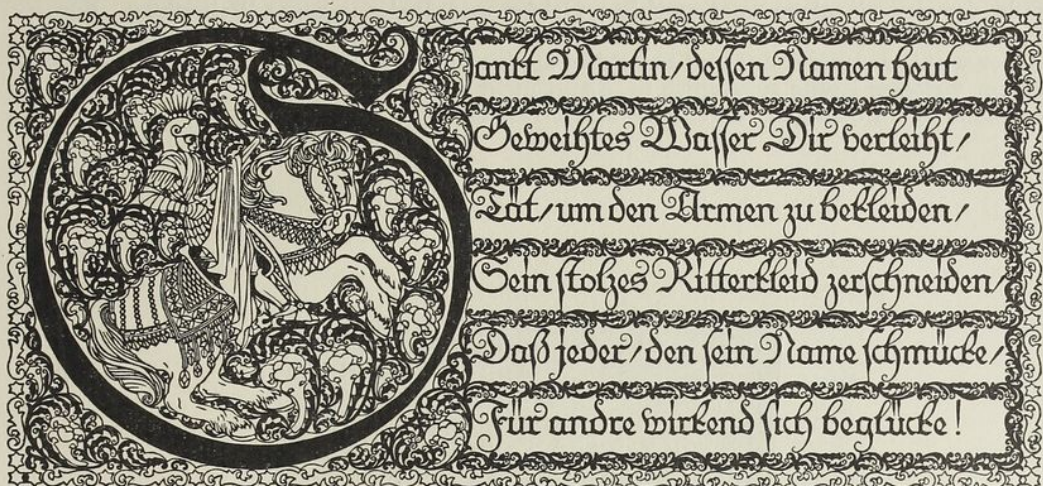 Sankt Martin/dessen Namen heut
Geweihtes Wasser Dir verleiht/
Tät/um den Armen zu bekleiden/
Sein stolzes Ritterkleid zerschneiden/
Daß jeder/den sein Name schmücke/
Für andre wirkend sich beglücke!